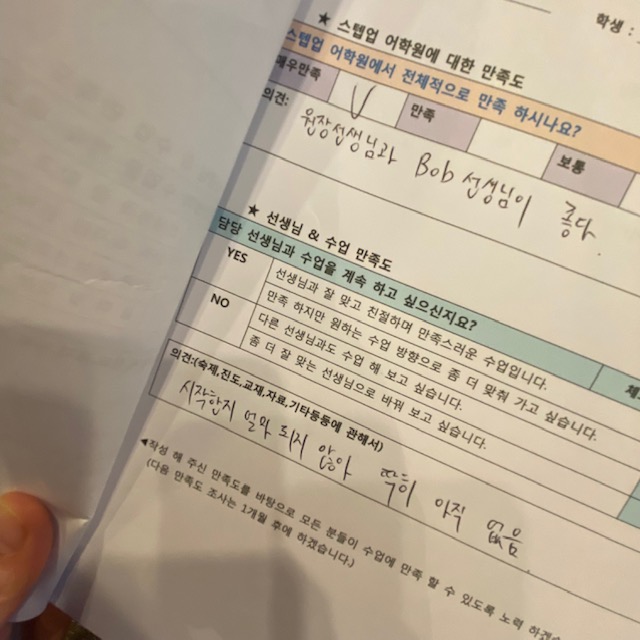 학생 :
★ 스텝업 어학원에 대한 만족도
스텝업 어학원에서 전체적으로 만족 하시나요?
매우만족 V 만족 보통
의견:
원장선생님과 Bob 선생님이 좋다.
★ 선생님 & 수업 만족도
담당 선생님과 수업을 계속 하고 싶으신지요?
YES 선생님과 잘 맞고 친절하며 만족스러운 수업입니다.
만족 하지만 원하는 수업 방향으로 좀 더 맞춰 가고 싶습니다.
NO 다른 선생님과도 수업 해 보고 싶습니다.
좀 더 잘 맞는 선생님으로 바꿔 보고 싶습니다.
의견:(숙제,진도,교재,자료,기타등등에 관해서)
시작한지 얼마 되지 않아 딱히 아직 없음
◀작성 해 주신 만족도를 바탕으로 모든 분들이 수업에 만족 할 수 있도록 노력
(다음 만족도 조사는 1개월 후에 하겠습니다.)